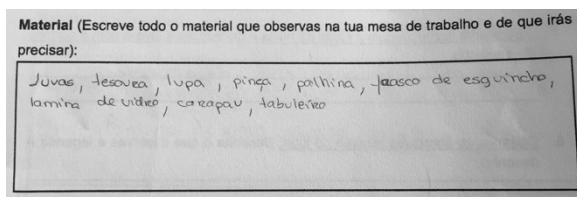 Material (Escreve todo o material que observas na tua mesa de trabalho e de que irás
precisar):
Luvas, tesoura, lupa, pinça, palhinha, frasco de esguincho,
lamina de vidro, carapau, tabuleiro